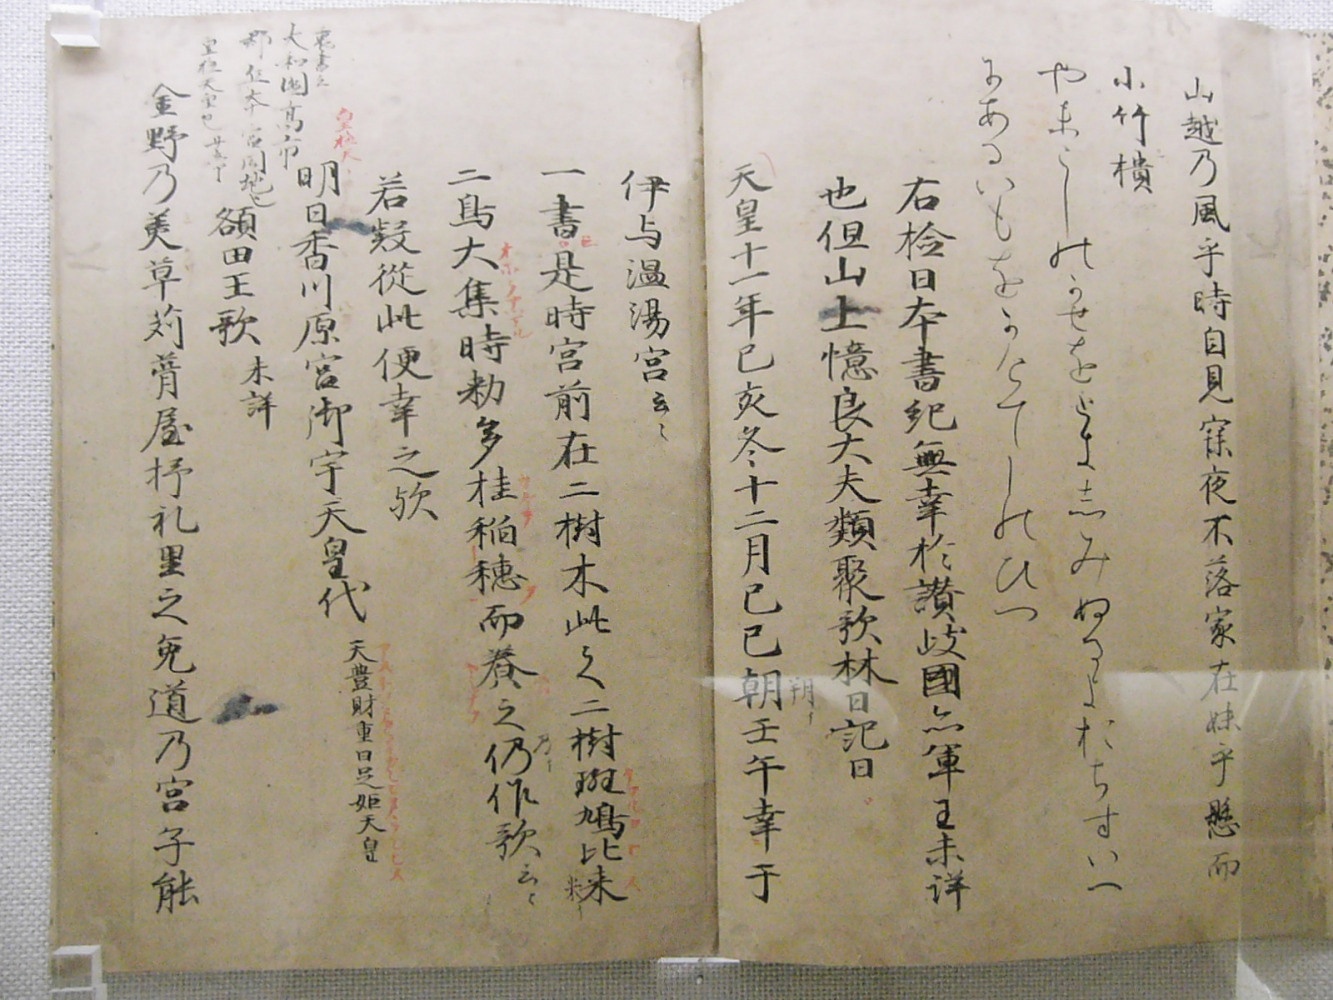 山越乃風乎時自見寐夜不落家在妹乎懸而
小竹樻
やまこしのかせをときしみぬるよおちすいへ
にあるいもをかけてしのひつ
右检日本書紀無幸於讃岐國亦軍王未詳
也但山上憶良大夫類聚歌林曰記曰
天皇十一年己亥冬十二月己巳朝壬午幸于
朔
伊与温湯宮云〻
一書是時宮前在二樹木此之二樹斑鳩比来
二鳥大集時勅多桂稲穂而養之仍作歌云〻
乃
米
若疑従此便幸之歟
明日香川原宮御宇天皇代
天豊財重日足姫天皇
皇極天
額田王歌
未詳
大和國高市
郡
金野乃美草苅葺屋杼礼里之兎道乃宮子能